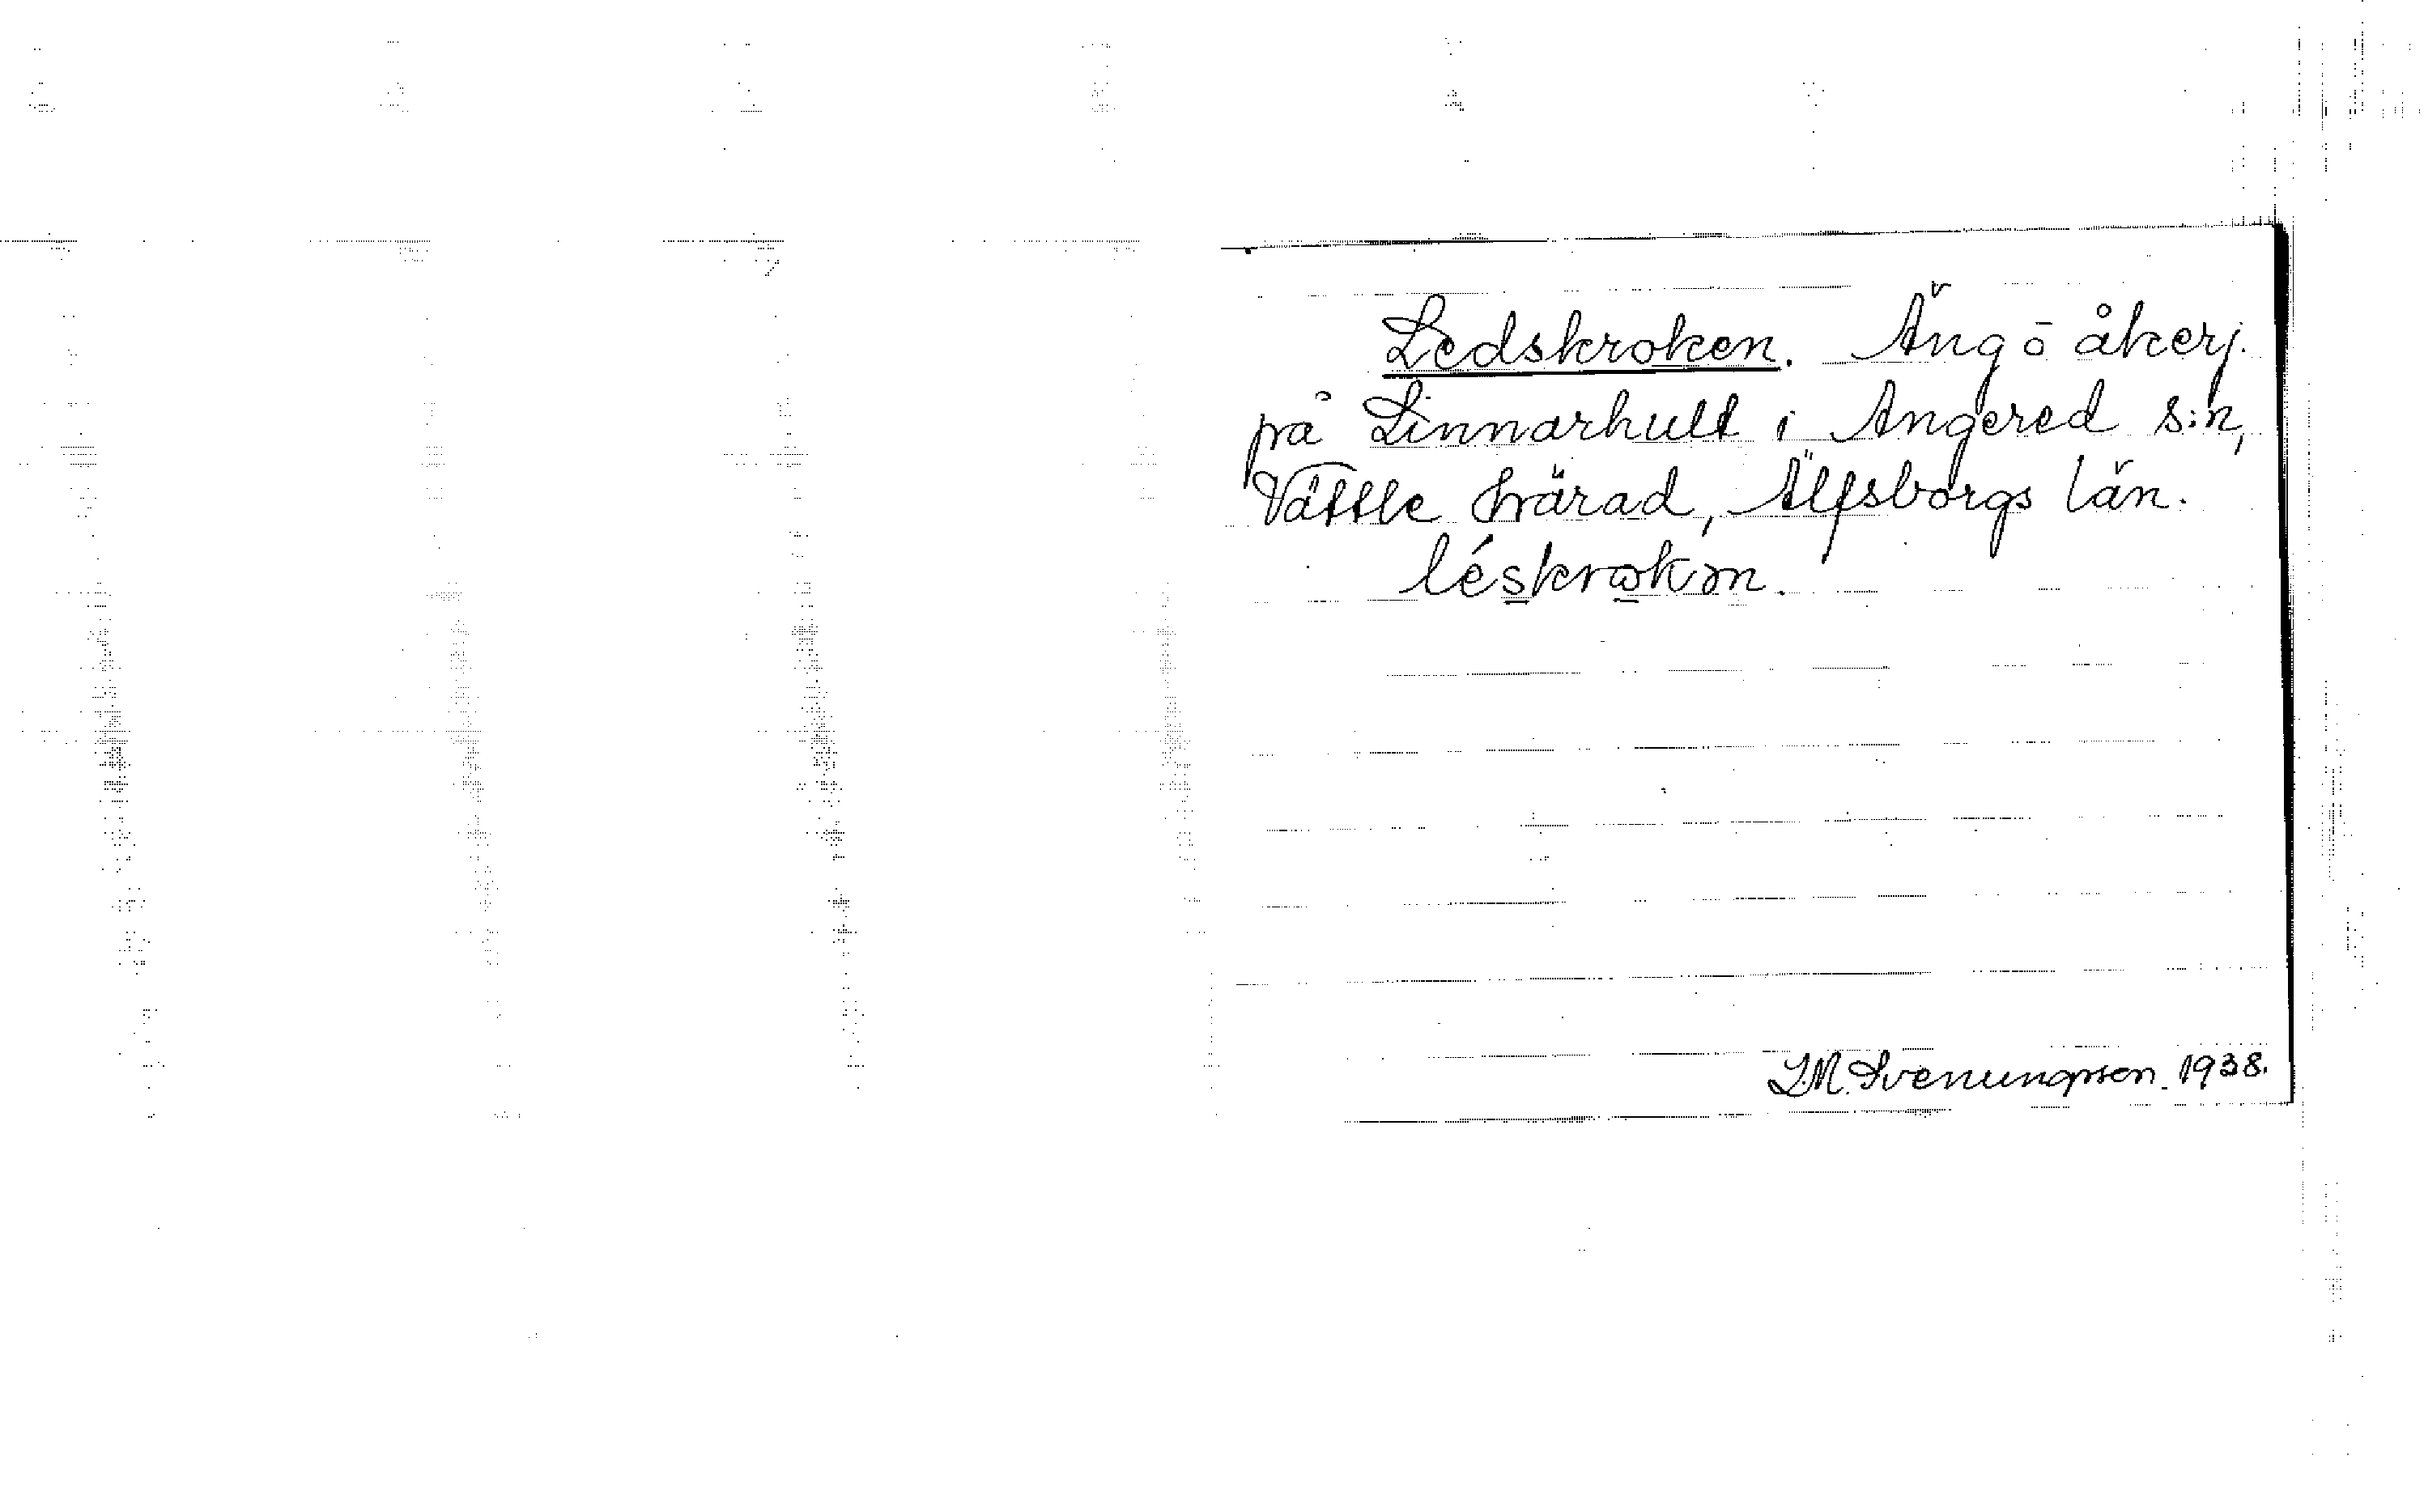 Ledskroken. Äng ō åkerj.
på Linnarhult i Angered s:n,
Vättle härad, Älfsborgs län.
léskrokən.
J.M. Svenungsson. 1938.